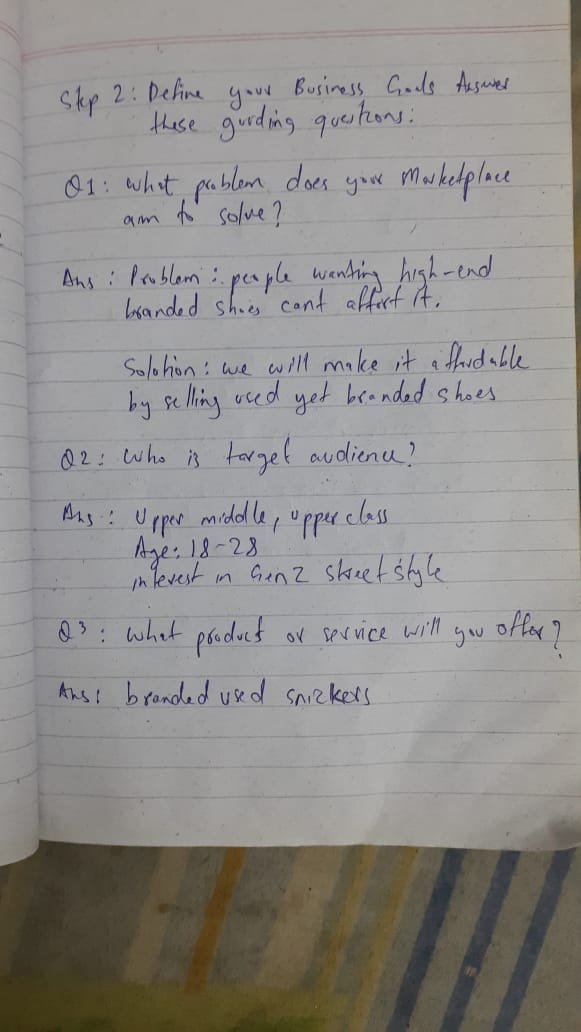 Step 2: Define your Business Goals Answer
these guiding questions:
Q1: what problem does your Marketplace
aim to solve?
Ans: Problem: people wanting high-end
branded shoes cant affort it.
Solotion: we will make it affordable
by selling used yet branded shoes
Q2: who is target audience?
Ans: Upper middle, upper class
Age: 18-28
interest in Gen Z street style
Q3: what product or service will you offer?
Ans: branded used snickers